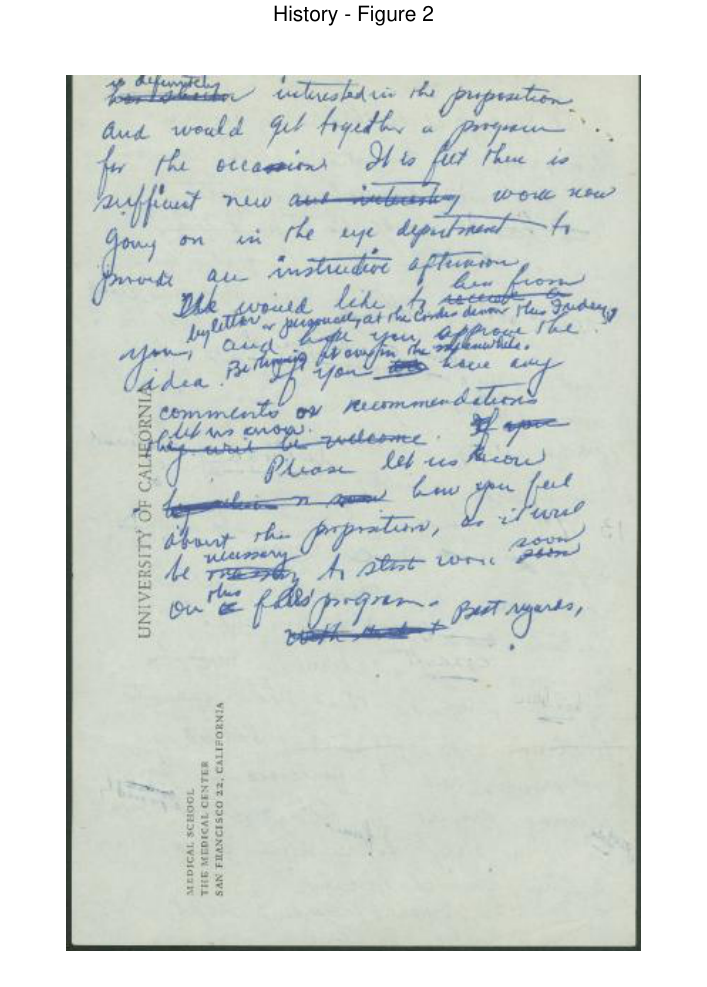 History - Figure 2
is definitely
interested in the proposition
and would get together a program
for the occasion. It is felt there is
sufficient new and interesting work now
going on in the eye department to
provide an instructive afternoon.
We would like to hear from
by letter or personally at the dinner this Friday,
you, and hope you approve the
idea. in the meanwhile.
If you have any
comments or recommendations
let us know.
they will be welcome. If you
Please let us know
how you feel
about this proposition, as it will
necessary soon
be necessary to start work soon
on this fall's program. Best regards,
UNIVERSITY OF CALIFORNIA
MEDICAL SCHOOL
THE MEDICAL CENTER
SAN FRANCISCO 22, CALIFORNIA